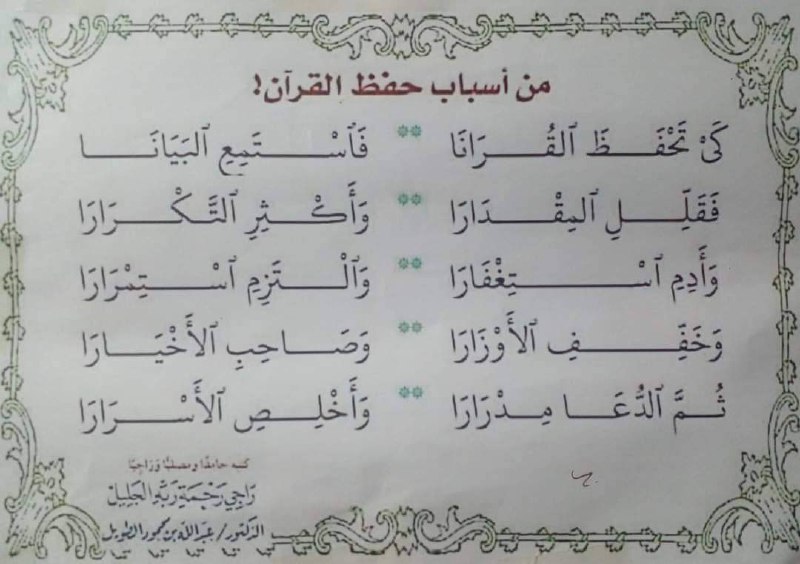 من أسباب حفظ القرآن!
كَيْ تَحْفَظَ ٱلقُرَانَا ** فَٱسْتَمِعِ ٱلبَيَانَا
فَقَلِّلِ ٱلمِقْدَارَا ** وَأَكْثِرِ ٱلتَّكْرَارَا
وَأَدِمِ ٱسْتِغْفَارَا ** وَٱلْتَزِمِ ٱسْتِمْرَارَا
وَخَفِّفِ ٱلأَوْزَارَا ** وَصَاحِبِ ٱلأَخْيَارَا
ثُمَّ ٱلدُّعَا مِدْرَارَا ** وَأَخْلِصِ ٱلأَسْرَارَا
كتبه حامدًا ومصليًا وَرَاجيًا
رَاجِي رَحْمَةِ رَبِّهِ الجَلِيلِ
الدكتور/ عبد الله بن محمود الطويل